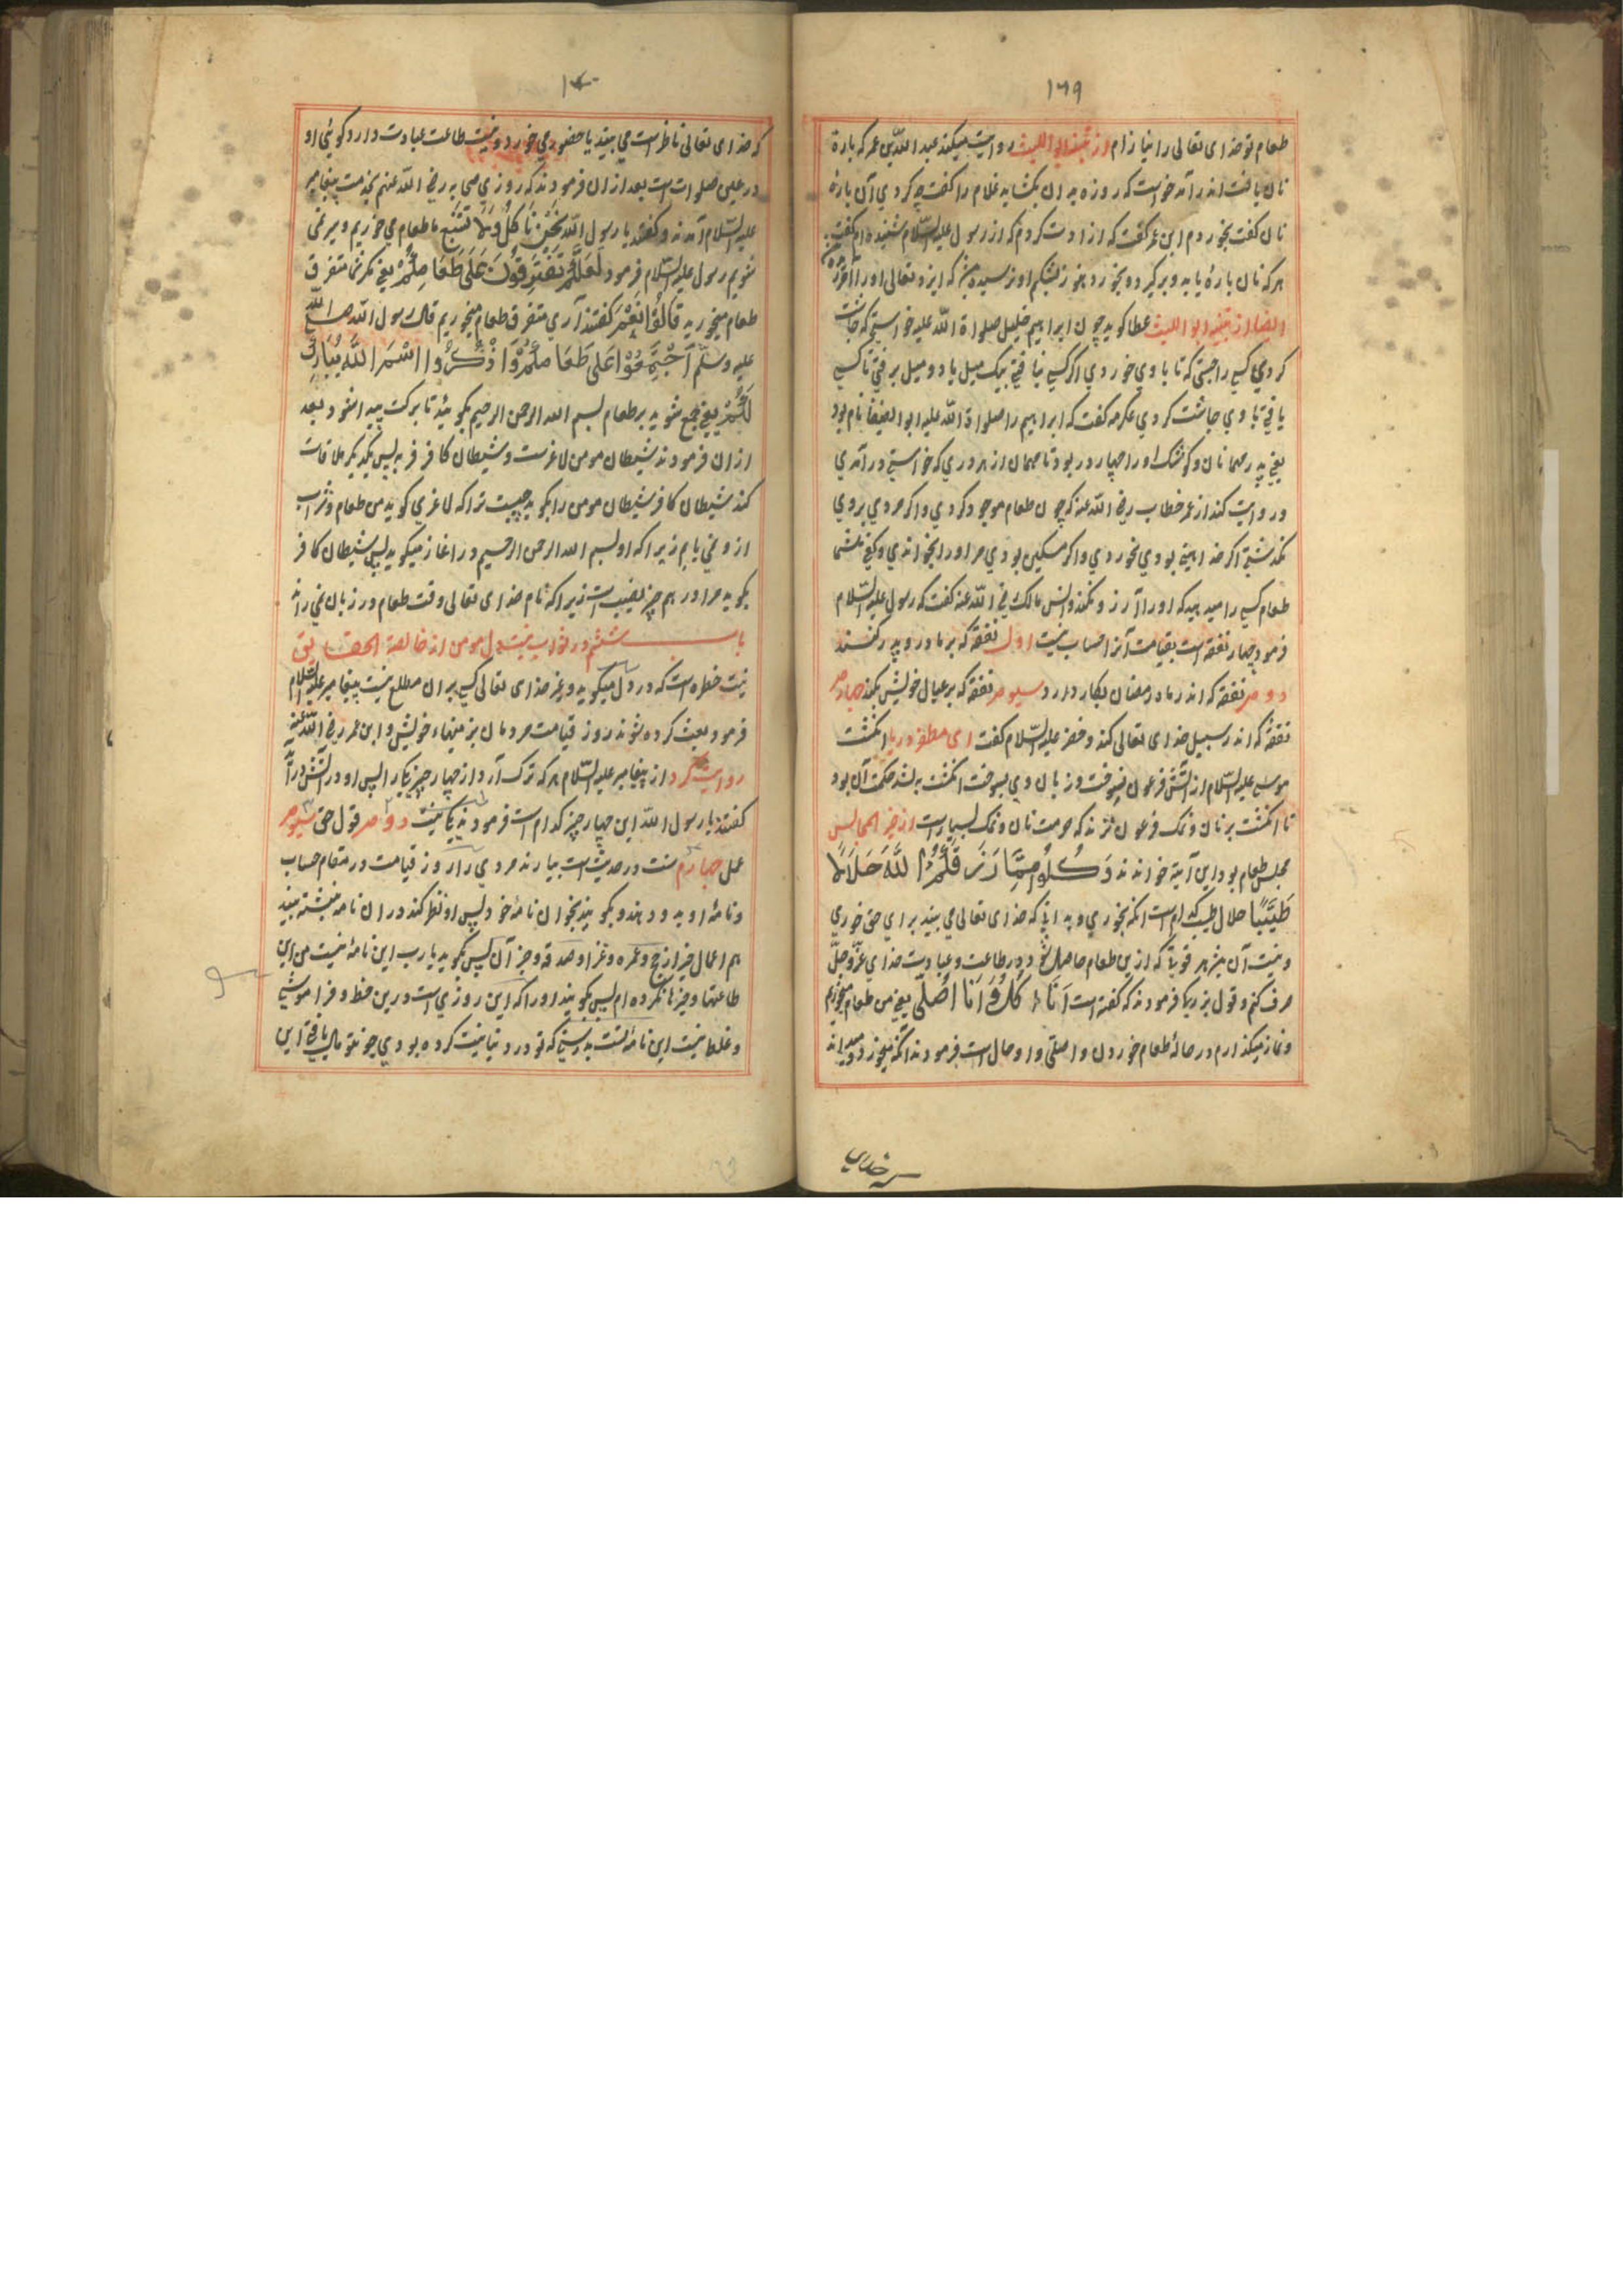 ١٦٩
طعام تو خدای تعالی را نیازام از تنبیه ابو اللیث روایت میکند عبد الله بن عمر که پارهٔ
نان یافت اندر آمد خواست که روزه بدان بکشاید غلام را کفت چه کردی آن پارهٔ
نان کفت بخوردم ابن عمر کفت که ازادت کردم که از رسول علیه السلام شنیده ام کفت
هر که نان پارهٔ یابد و برکیرد و بخورد هنوز بشکم او نرسیده بود که ایزد تعالی او را
ایضا از تنبیه ابو اللیث عطا کوید چون ابراهیم خلیل صلواة الله علیه خواستی که چاشت
کردی کسی را جستی که تا با وی خوردی اکر کسی نیافتی یک میل یا دو میل برفتی تا کسی
یافتی با وی چاشت کردی عکرمه کفت که ابراهیم را صلواة الله علیه ابو الضیفان نام بود
یعنی پدر مهمانان و کوشک او را چهار در بود تا مهمان از هر دری که خواستی در آمدی
و روایت کنند از عمر خطاب رضی الله عنه که چون طعام موجود کردی و اکر مردی بروی
بکذشتی اکر خداهیبة بودی نخوردی و اکر مسکین بودی مر او را بخواندی و کفتی
طعام کسی را میدهید که او را آرزو نکند و انس مالک رضی الله عنه کفت که رسول علیه السلام
فرمود چهار نفقه است بقیامت آنرا حساب نیست اول نفقه که بر مادر و پدر کنند
دوم نفقه که اندر ماه رمضان بکار دارد سیوم نفقه که بر عیال خویش بکند چهارم
نفقهٔ که اندر سبیل خدای تعالی کند و خضر علیه السلام کفت ای مظفر دریا انکشت
موسی علیه السلام از آتش فرعون نسوخت و زبان وی بسوخت انکشت حکمت آن بود
تا انکشت بر نان و نمک فرعون نزند که حرمت نان و نمک بسیار است از خیر المجالس
مجلس طعام بود این آیة خواندند وَكُلُوا مِمَّا رَزَقَكُمُ اللَّهُ حَلَالًا
طَيِّبًا حلال طیب کدام است انکه بخوری و بدانی که خدای تعالی می بیند برای حق خوری
و نیت آن بهتر هر قوتی که ازین طعام حاصل شود در طاعت و عبادت خدای عزّ و جلّ
صرف کنم و قول بزرکی فرمودند که کفته است اَنَا اٰكُلُ وَ اَنَا اُصَلّی یعنی من طعام میخورم
و نماز میکذارم در حالهٔ طعام خوردن و اصلّی واو حال است فرمودند آنکه میخورد و میداند
سیر خدای
١٧٠
که خدای تعالی ناظر است می بیند با حضور می خورد و نیت طاعت عبادت دارد کوئی او
در عین صلوات است بعد ازان فرمودند که روزی صحابه رضی الله عنهم بخدمت پیغامبر
علیه السلام آمدند و کفتند یا رسول الله نَحْنُ نَاْكُلُ وَلَا نَشْبَعُ ما طعام می خوریم و سیر نمی
شویم رسول علیه السلام فرمود لَعَلَّكُمْ تَفْتَرِقُوْنَ عَلَی طَعَامِكُمْ یعنی مکر شما متفرق
طعام میخورید قَالُوْا نَعَمْ کفتند آری متفرق طعام میخوریم قال رسول الله صلی الله
علیه وسلم اَجْتَمِعُوْا عَلَی طَعَامِكُمْ وَ اذْكُرُوا اسْمَ اللَّهِ يُبَارِكْ
لَكُمْ یعنی جمع شوید بر طعام بسم الله الرحمن الرحیم بکوئید تا برکت پیدا شود بعد
ازان فرمودند شیطان مومن لاغر ست و شیطان کافر فربه پس یکدیکر ملاقات
کند شیطان کافر شیطان مومن را بکوید چیست ترا که لاغری کوید من طعام و شراب
ازو نمی یابم زیرا که او بسم الله الرحمن الرحیم در اغاز میکوید پس شیطان کافر
بکوید مرا در هم چیز نصیب است زیرا که نام خدای تعالی وقت طعام در زبان نمی راند
باب ششم در ثواب نیت دل مومن از خالصة الحقایق
نیت خطره است که در دل میکوید و غیر خدای تعالی کسی بران مطلع نیست پیغامبر علیه السلام
فرمود بعث کرده شوند روز قیامت مردمان بر نیتهاء خویش و ابن عمر رضی الله عنه
روایت کرد از پیغامبر علیه السلام هر که ترک آرد از چهار چیز یکی را پس او در آتش در آید
کفتند یا رسول الله این چهار چیز کدام است فرمودند یکی نیت دوم قول حق سیوم
عمل چهارم سنت در حدیث است بیارند مردی را روز قیامت در مقام حساب
و نامهٔ او بدو دهند و بکویند بخوان نامهٔ خود پس او نظر کند دران نامه نبشته بیند
هم اعمال خیر از حج و عمره و غزا و صدقه و جز آن پس بکوید یا رب این نامهٔ نیست من این
طاعتها و چیزها نکرده ام پس کویند او را که این روزی است درین خطا و فراموشی
و غلط نیست این نامهٔ تست بدرستی که تو در دنیا نیت کرده بودی چو نتو مال یافتی این